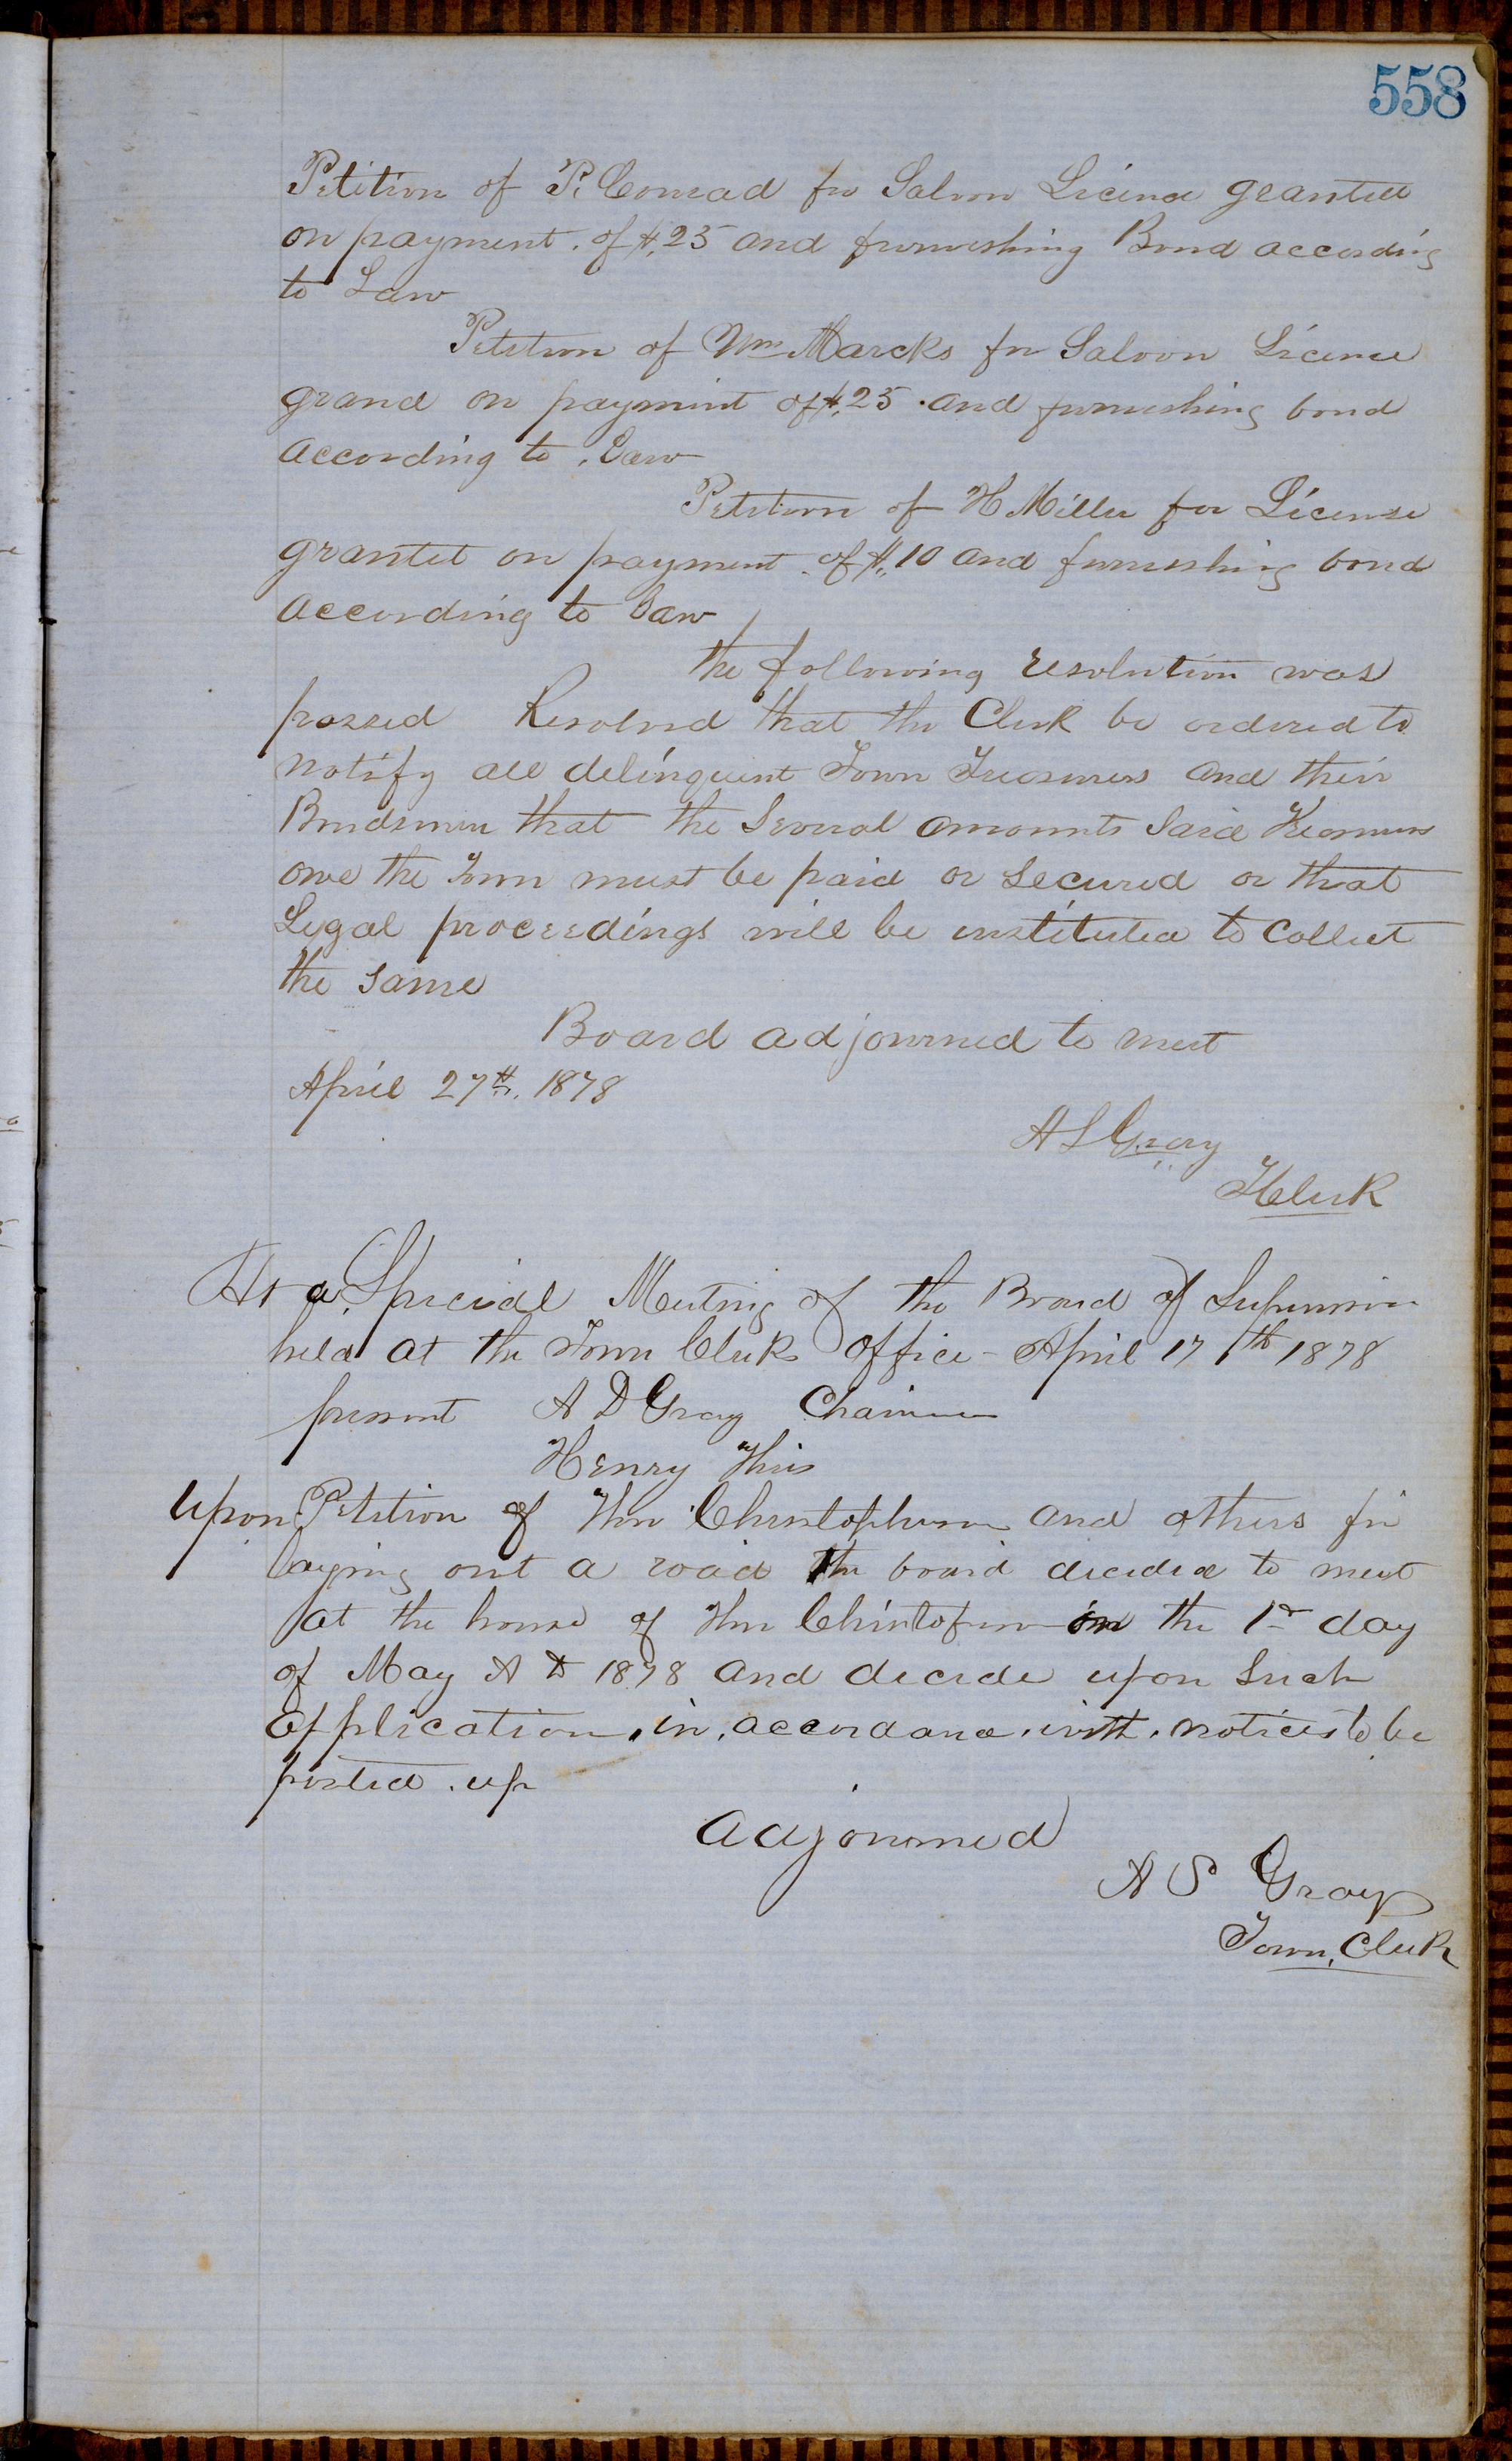 558
Petition of P. Conrad for Saloon Licence grantett
on payment of $25 and furnishing Bond according
to Law
Petition of Wm Marcks for Saloon Licence
grand on payment of $25 and furnishing bond
according to Law
Petition of H Miller for License
grantet on payment of $10 and furnishing bond
according to Law
the following resolution was
passed Resolved that the Clerk be ordered to
notify all delinquent Town Treasurers and their
Bondsmen that the Several amounts Said Treasurers
owe the Town must be paid or Secured or that
Legal proceedings will be instituted to Collect
the Same
Board adjourned to meet
April 27th. 1878
A S Gray
T Clerk
At a Special Meeting of the Board of Supervisors
held at the Town Clerks Office - April 17th 1878
present A D Gray Chairman
Henry
Upon Petition of and others for
laying out a road the board decided to meet
at the house of on the 1st day
of May A D 1878 and decide upon Such
application in accordance with notices to be
posted up
Adjourned
A S Gray
Town Clerk